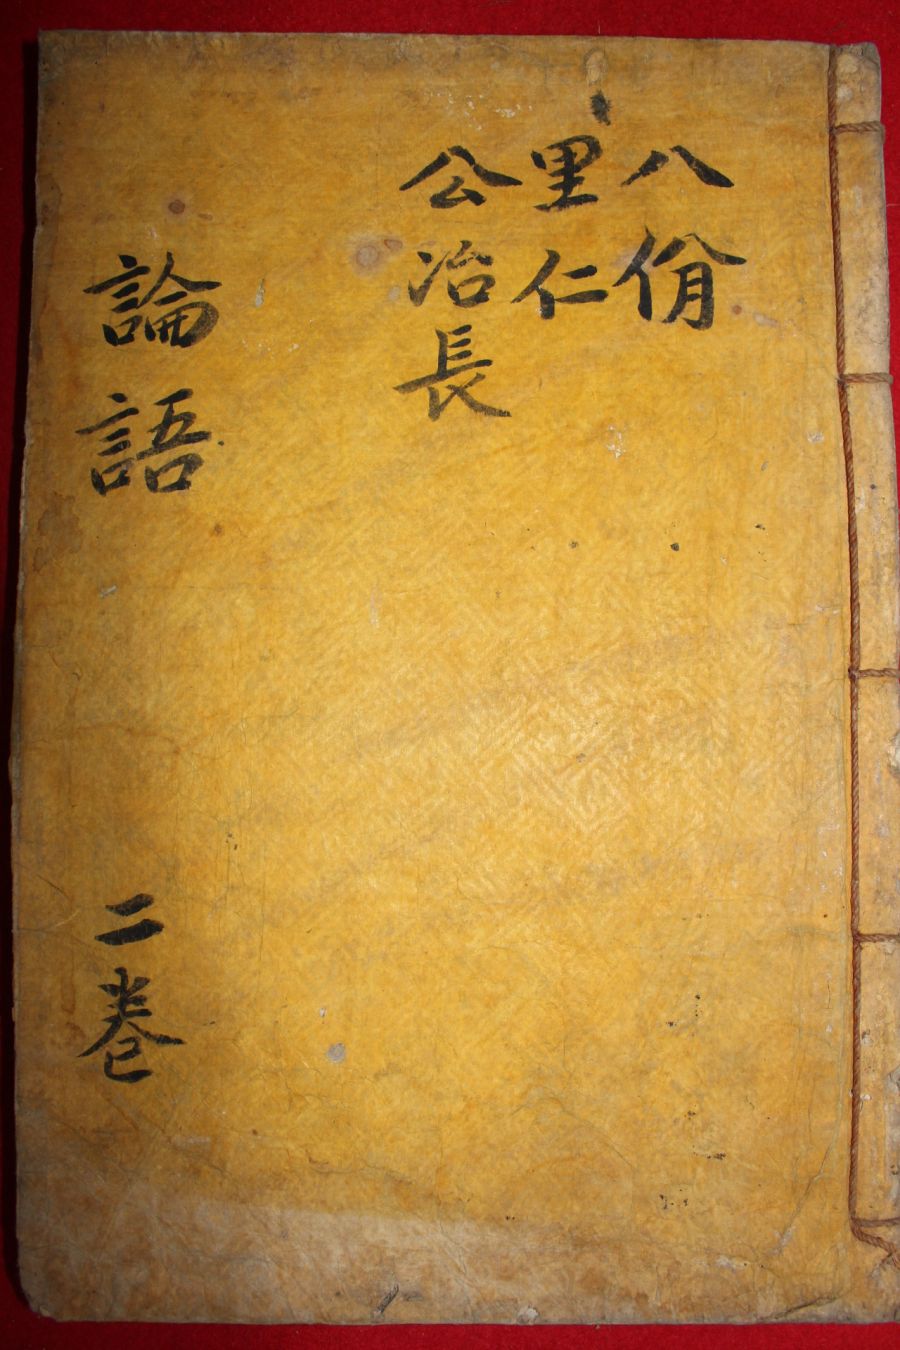 八佾
里仁
公冶長
論語
二卷